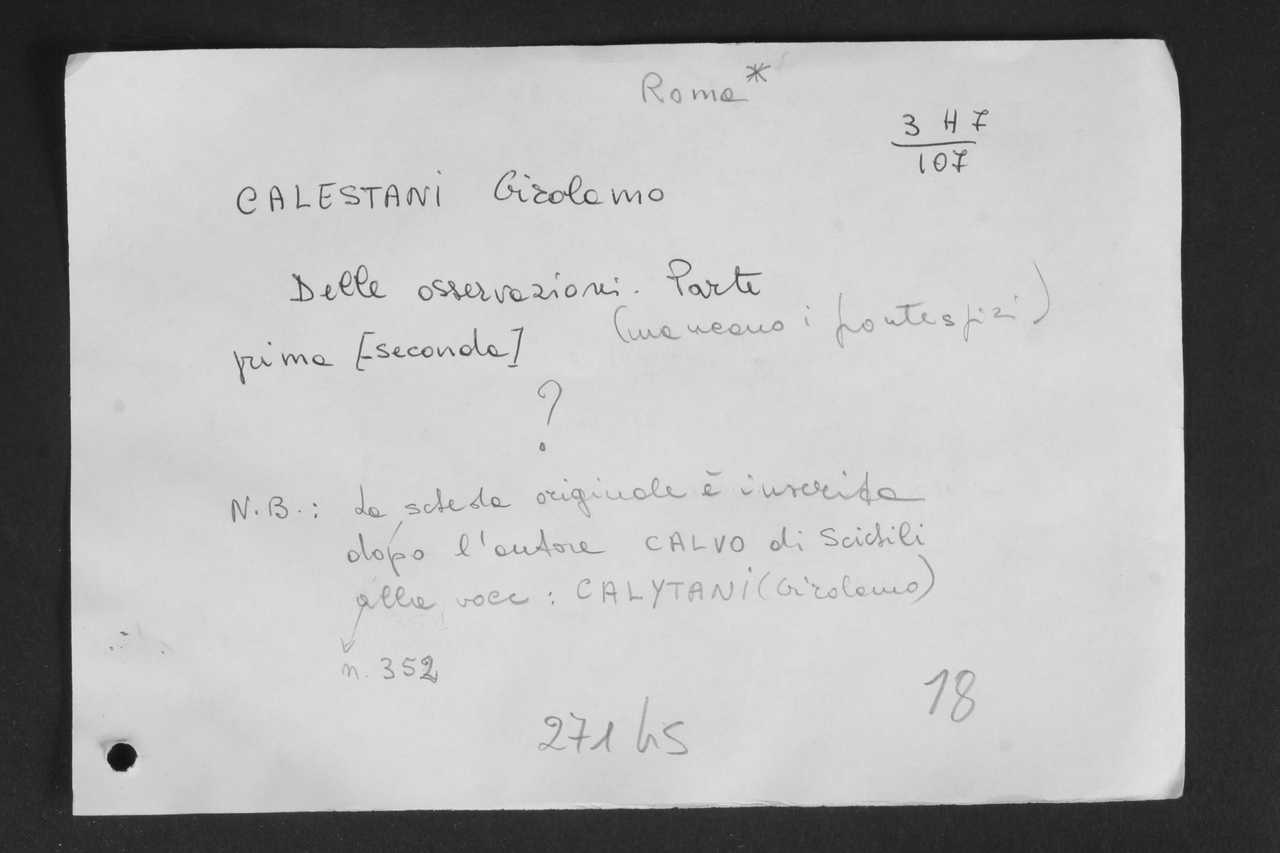 Roma*
3 H 7
107
CALESTANI Girolamo
Delle osservazioni. Parte
prima [seconda] (mancano i frontespizi)
?
N.B.: La scheda originale è inserita
dopo l'autore CALVO di Scichili
alla voce: CALYTANI (Girolamo)
n. 352
18
271 bis